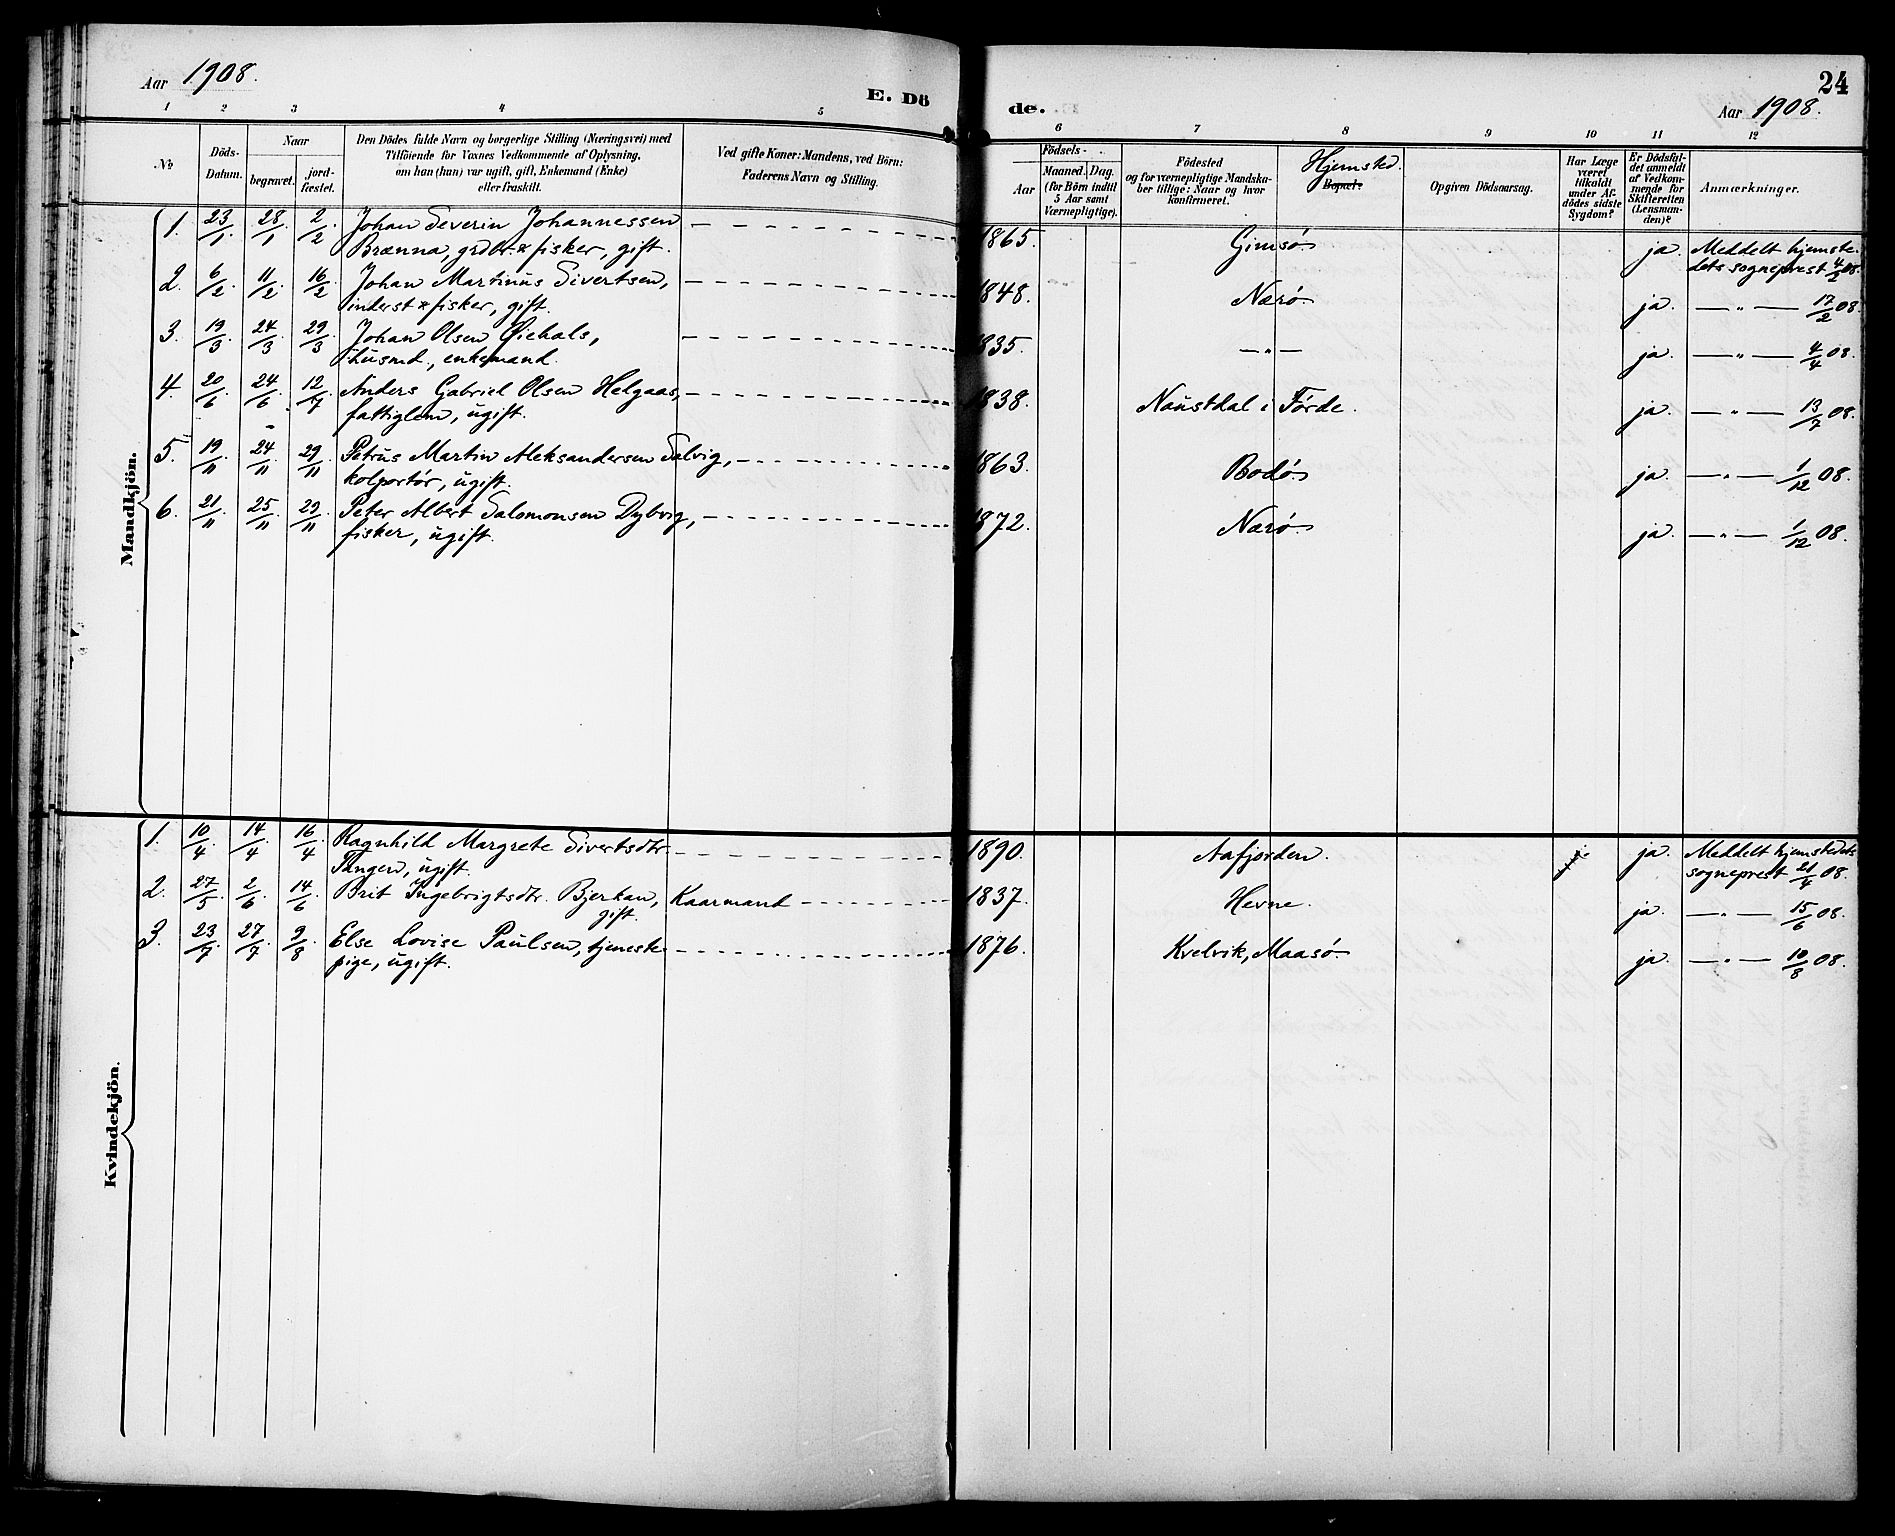 Aar 1908.
E. Dö
1 2 3 4 5
№
Döds-
Datum.
Naar
begravet.
jord-
fæstet.
Den Dödes fulde Navn og borgerlige Stilling (Næringsvei) med
Tilföiende for Voxnes Vedkommende af Oplysning,
om han (hun) var ugift, gift, Enkemand (Enke)
eller fraskilt.
Ved gifte Koner: Mandens, ved Börn:
Faderens Navn og Stilling.
Mandkjön.
1. 23/1. 28/1 2/2. Johan Severin Johannessen
Brænna, grdbr. & fisker, gift.
2. 6/2. 11/2. 16/2 Johan Martinus Sivertsen,
inderst & fisker, gift.
3. 19/3. 24/3. 29/3 Johan Olsen Øiehals,
husmd., enkemand.
4. 20/6. 24/6. 12/7. Anders Gabriel Olsen Helgaas,
fattiglem, ugift.
5. 19/11. 24/11. 29/11. Petrus Martin Aleksandersen Salvig,
kolportør, ugift.
6. 21/11. 25/11. 29/11. Peter Albert Salomonsen Dybvig,
fisker, ugift.
Kvindekjön.
1. 10/4. 14/4. 16/4 Ragnhild Margrete Sivertsdtr.
Tangen, ugift.
2. 27/5. 2/6. 14/6. Brit Ingebrigtsdtr. Bjerkan, Kaarmand
gift.
3. 23/7. 27/7. 9/8. Else Lovise Paulsen, tjeneste-
pige, ugift.
24
de.
Aar 1908.
6 7 8 9 10 11 12
Födsels-
Aar
Maaned. Dag.
(for Börn indtil
5 Aar samt
Værnepligtige).
Födested
og for værnepligtige Mandska-
ber tillige: Naar og hvor
konfirmeret.
Hjemsted.
Bopæl.
Opgiven Dödsaarsag.
Har Læge
været
tilkaldt
under Af-
dödes sidste
Sygdom?
Er Dödsfal-
det anmeldt
af Vedkom-
mende for
Skifteretten
(Lensman-
den)?
Anmærkninger.
1865. Gimsø. ja. Meddelt hjemste-
dets sogneprest 4/2 08.
1848. Nærø. ja. — „ — 17/2 08.
1835. — „ — ja. — „ — 4/4 08.
1838. Naustdal i Førde. ja. — „ — 13/7 08.
1863. Bodø. ja. — „ — 1/12 08.
1872. Nærø. ja. — „ — 1/12 08.
1890. Aafjorden. ja. Meddelt hjemstedets
sogneprest 21/4 08.
1837. Hevne. ja. — „ — 15/6 08.
1876. Kvelvik, Maasø. ja. — „ — 10/8 08.